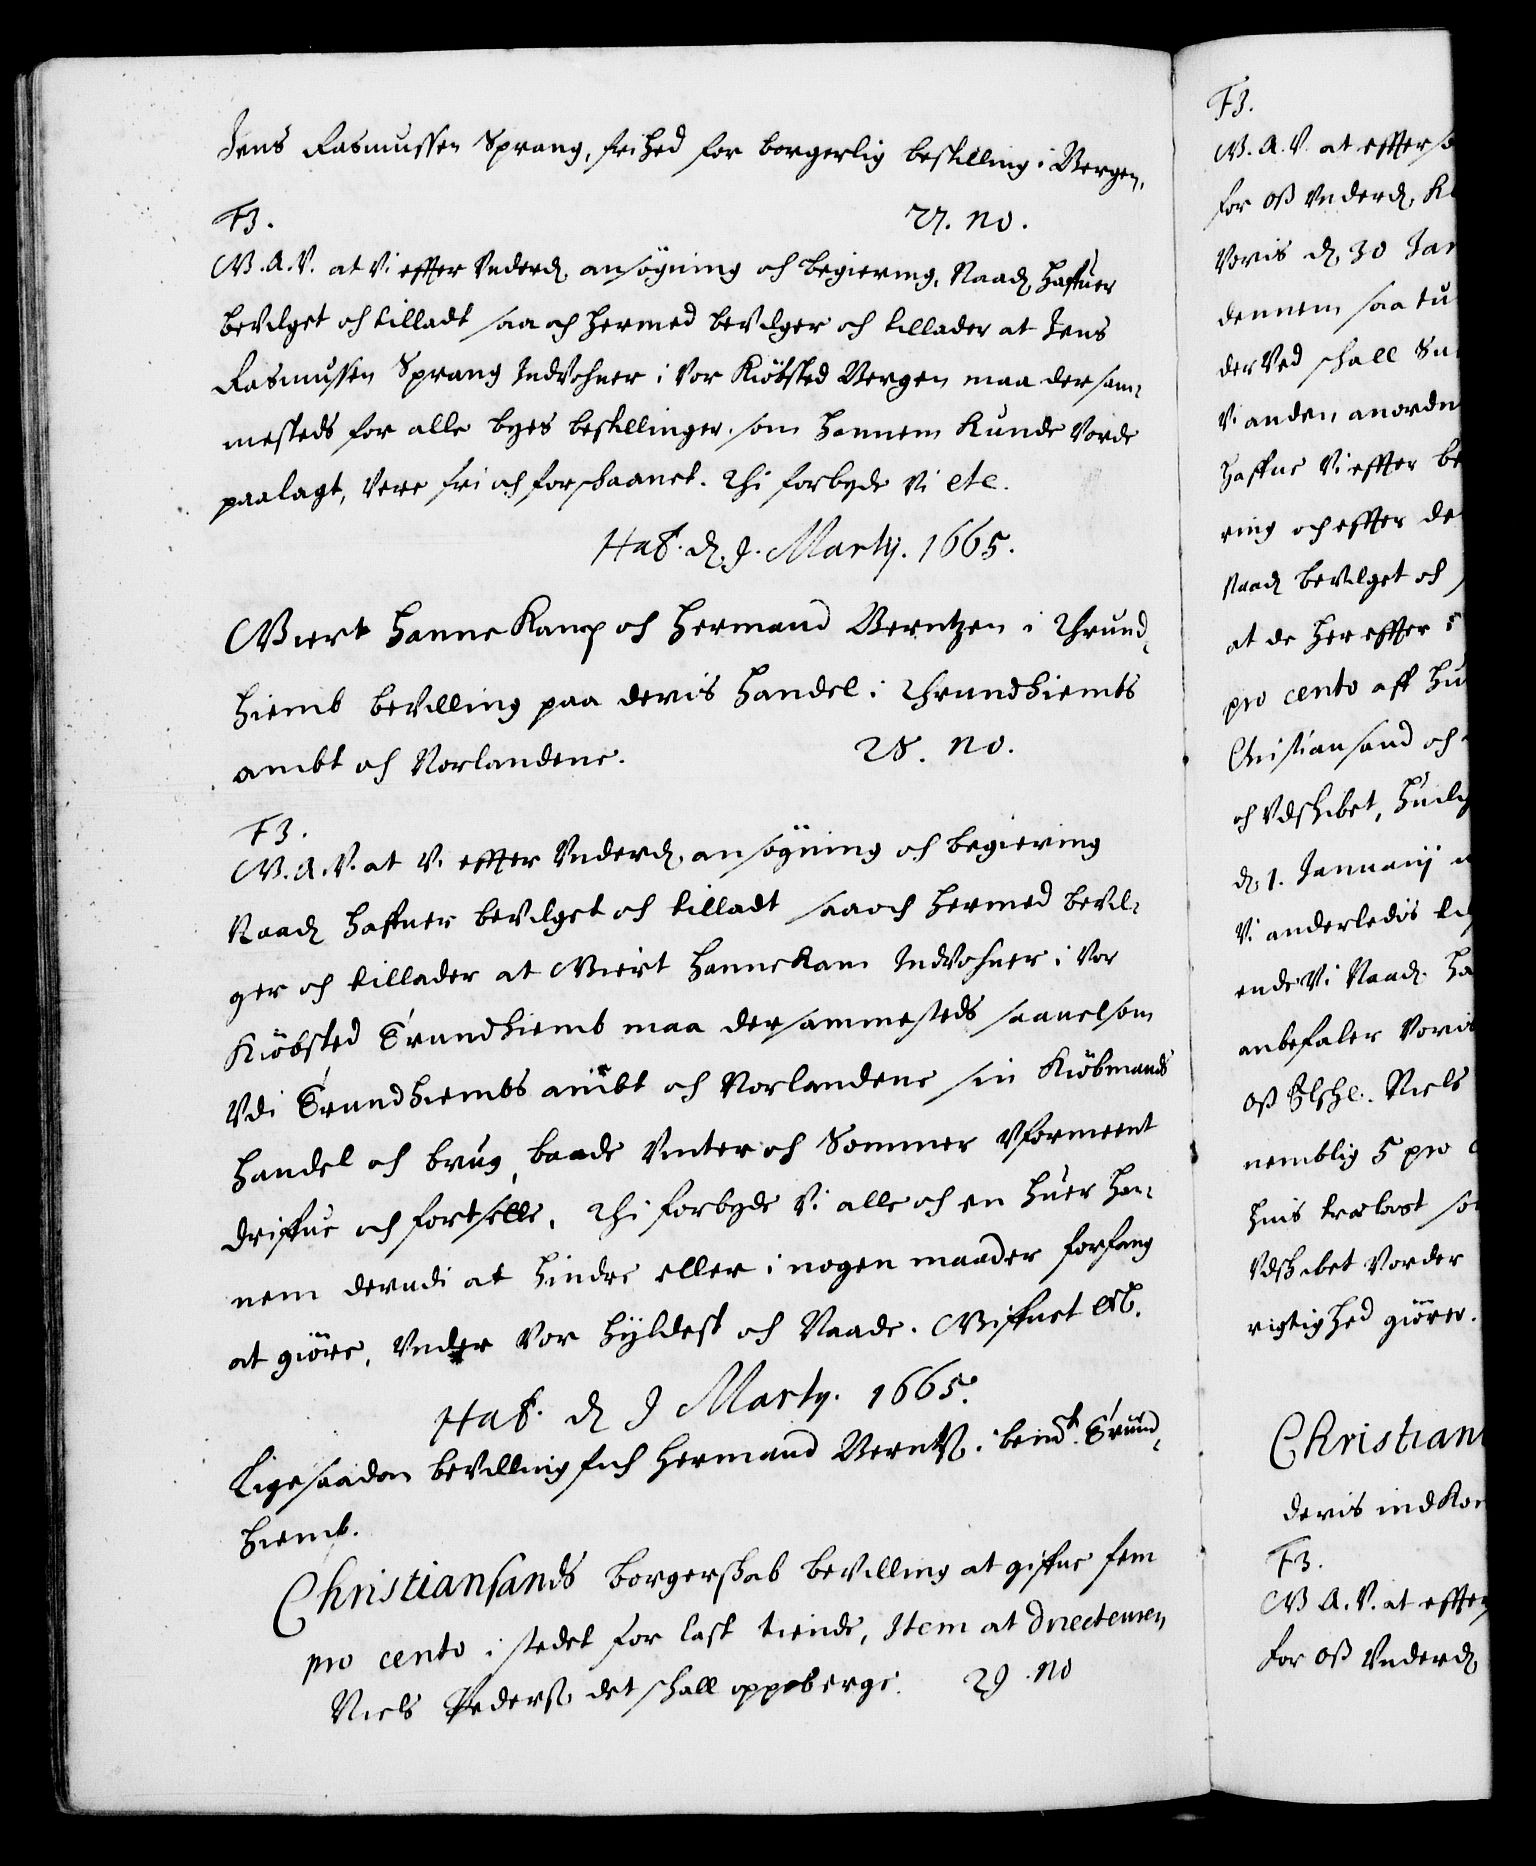 Jens Rasmussen Sprang, frihed for borgerlig bestilling i Bergen.
F3. 27. no.
W.A.V. at Vi effter Underd. ansøgning och begiering, Naad. haffuer
bevilget och tilladt saa och hermed bevilger och tillader at Jens
Rasmussen Sprang Indvohner i Vor Kiøbsted Bergen maa dersam-
mesteds for alle byes bestillinger, som hannem Kunde Vorde
paalagt, Vere fri och forskaanet. Thi forbyde Vi etc.
Haf. d. 9. Martij. 1665.
Wiert HanneKamp och Hermand Berntzen i Thrund-
hiemb bevilling paa deris Handel i Thrundhiembs
ambt och Norlandene. 28. no.
F3.
W.A.V. at Vi effter Underd. ansøgning och begiering
Naad. haffuer bevilget och tilladt saa och hermed bevil-
ger och tillader at Wiert HanneKam Indvohner i Vor
Kiøbsted Trundhiemb maa dersammesteds saauelsom
Vdi Trundhiembs ambt och Norlandene sin Kiøbmands
handel och brug, baade Vinter och Sommer Vformeent
driffue och fortsette, Thi forbyde Vi alle och en huer han-
nem derudi at hindre eller i nogen maader forfang
at giøre, Under Vor Hyldest och Naade. Giffuet etc.
Haf. d 9 Martij. 1665.
Ligesaadan bevilling fich Hermand Berntz. i bemt. Trund-
hiemb.
Christiansands borgerskab bevilling at giffue fem
pro cento i stedet for last tiende, Item at Directeuren
Niels Pederss. det skall oppeberge. 29. no
F3.
W.A.V. at effters
for oss Underd. K
Voris d. 30 Jan
dennem saa tu
derVed skall
Vi anden anordn
haffue Vi effter be
ring och effter de
Naad bevilget och
at de her effter
pro cento aff hu
Christiansand och
och Vdskibet, huilch
d. 1. Januarij
Vi anderledis
ende Vi Naad. ha
anbefaler Voris
oss Elskl. Niels
nemblig 5 pro c
huis trælast so
Vdskibet Vorder
rigtighed giører.
Christian
deris indKom
F3.
W.A.V. at effter
for oss Underd.